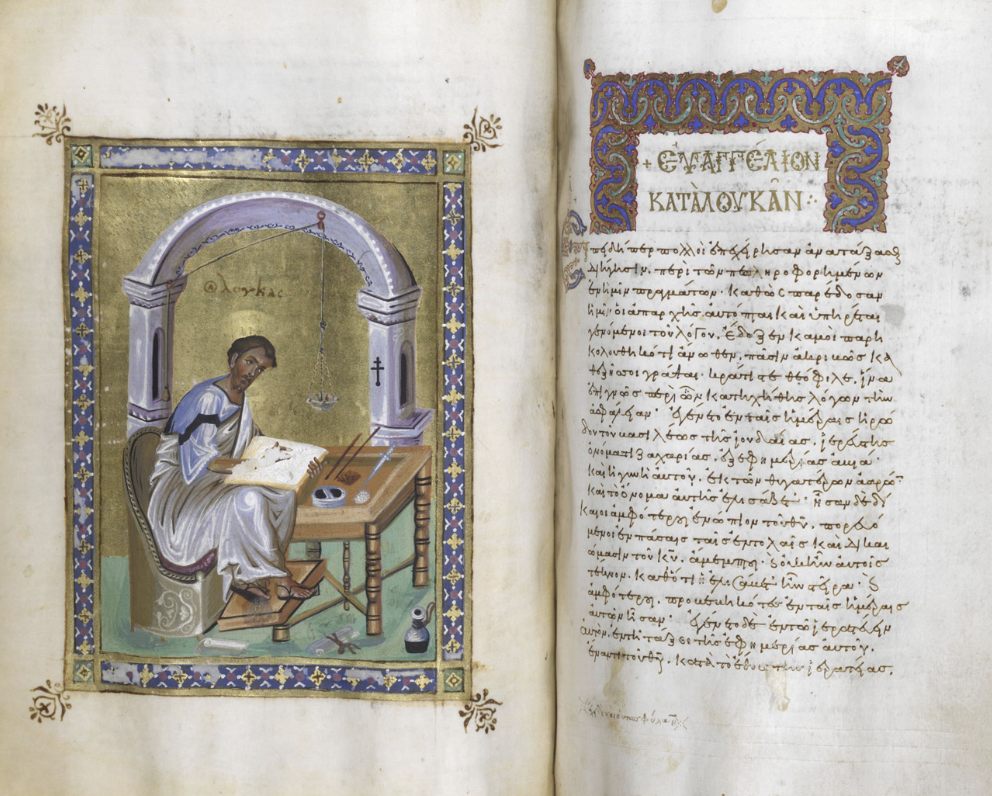 λουκας
+ ΕΥΑΓΓΕΛΙΟΝ
ΚΑΤΑ ΛΟΥΚΑΝ
Ἐπειδήπερ πολλοὶ ἐπεχείρησαν ἀνατάξασθαι
διήγησιν. περὶ τῶν πεπληροφορημένων
ἐν ἡμῖν πραγμάτων. καθὼς παρέδοσαν
ἡμῖν οἱ ἀπαρχῆς αὐτόπται καὶ ὑπηρέται
γενόμενοι τοῦ λόγου. ἔδοξεν κἀμοὶ παρη
κολουθηκότι ἄνωθεν. πᾶσιν ἀκριβῶς κα
θεξῆς σοι γράψαι. κράτιστε θεόφιλε. ἵνα
ἐπιγνῷς περὶ ὧν κατηχήθης λόγων τὴν
ἀσφάλειαν. Ἐγένετο ἐν ταῖς ἡμέραις ἡρώ
δου τοῦ βασιλέως τῆς ἰουδαίας. ἱερεύς τις
ὀνόματι ζαχαρίας. ἐξ ἐφημερίας ἀβιά
καὶ ἡ γυνὴ αὐτοῦ. ἐκ τῶν θυγατέρων ἀαρὼ
καὶ τὸ ὄνομα αὐτῆς ἐλισάβετ. ἦσαν δὲ δί
καιοι ἀμφότεροι ἐνώπιον τοῦ θῦ. πορευό
μενοι ἐν πάσαις ταῖς ἐντολαῖς καὶ δικαι
ώμασιν τοῦ κῦ. ἄμεμπτοι. ϗ οὐκ ἦν αὐτοῖς
τέκνον. καθότι ἡ ἐλισάβετ ἦν στεῖρα. ϗ
ἀμφότεροι. προβεβηκότες ἐν ταῖς ἡμέραις
αὐτῶν ἦσαν. Ἐγένετο δὲ ἐν τῷ ἱερατεύειν
αὐτὸν. ἐν τῇ τάξει τῆς ἐφημερίας αὐτοῦ.
ἔναντι τοῦ θῦ. κατὰ τὸ ἔθος τῆς ἱερατείας.